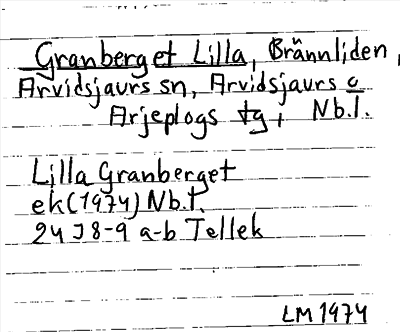 Granberget Lilla, Brännliden,
Arvidsjaurs sn, Arvidsjaurs o
Arjeplogs tg, Nb.l.
Lilla Granberget
ek(1974) Nb.t.
24 J 8-9 a-b Tellek
LM 1974